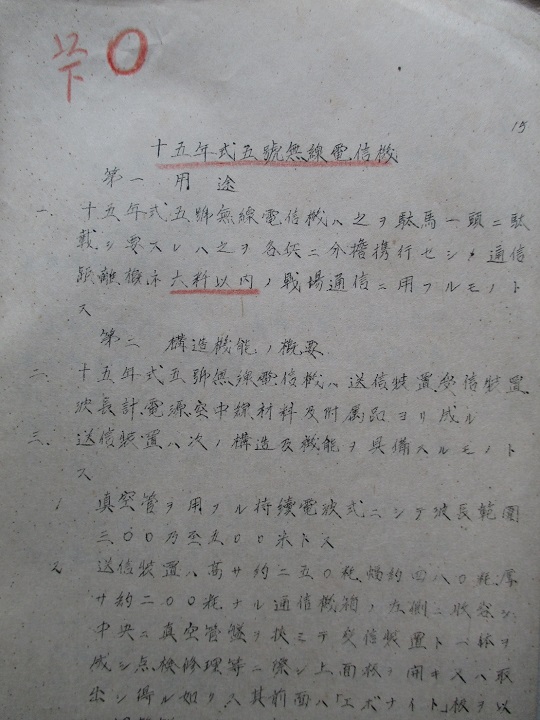 15
十五年式五號無線電信機
第一 用途
一、十五年式五號無線電信機ハ之ヲ駄馬一頭ニ駄
載シ要スレハ之ヲ各兵ニ分擔携行セシメ通信
距離概ネ六粁以内ノ戦場通信ニ用フルモノト
ス
第二 構造機能ノ概要
二、十五年式五號無線電信機ハ送信装置受信装置
波長計電源空中線材料及附属品ヨリ成ル
三、送信装置ハ次ノ構造及機能ヲ具備スルモノト
ス
1 真空管ヲ用フル持續電波式ニシテ波長範囲
三〇〇乃至五〇〇米トス
2 送信装置ハ高サ約二五〇粍幅約四八〇粍厚
サ約二〇〇粍ナル通信機箱ノ左側ニ收容シ
中央ニ真空管 ヲ挾ミテ受信装置ト一体ヲ
成シ点検修理等ニ際シ上面板ヲ開キ又ハ取
出シ得ル如クス其前面ハ「エボナイト」板ヲ以